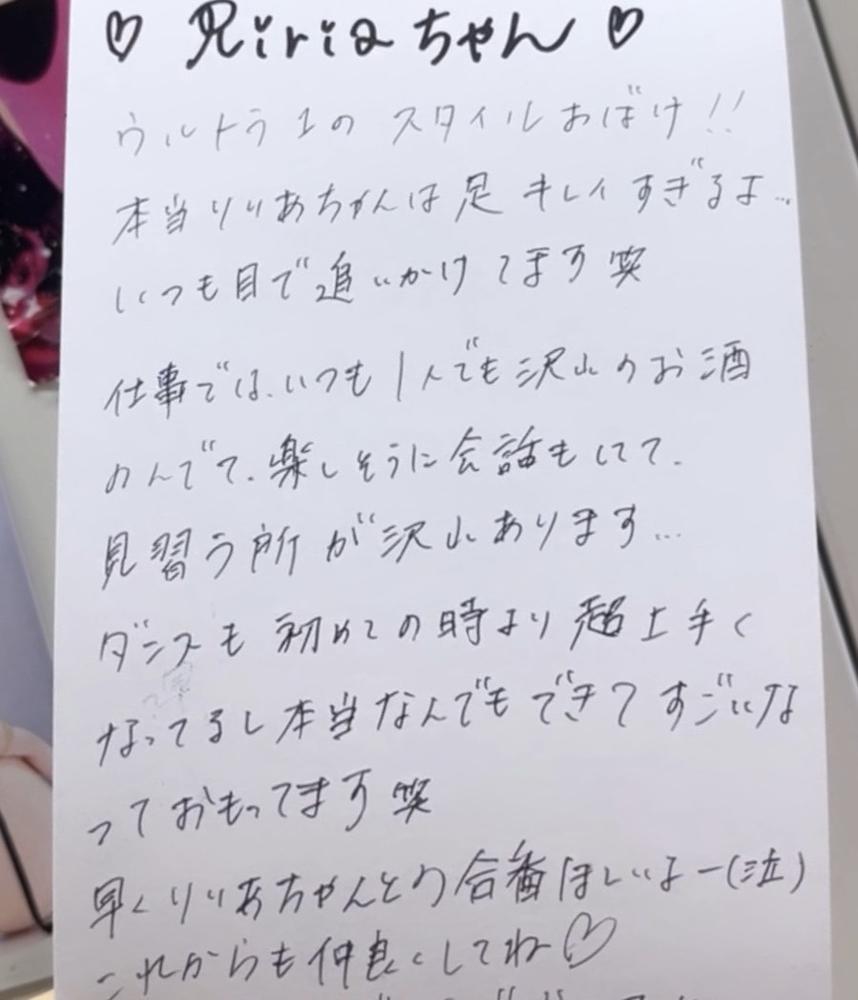 ♡ Riria ちゃん ♡
ウルトラ1の スタイルおばけ!!
本当りりあちゃんは足 キレイすぎるよ...
いつも目で追いかけてます 笑
仕事では、いつも1人でも沢山のお酒
のんでて、楽しそうに会話もしてて、
見習う所が沢山あります...
ダンスも 初めての時より 超上手く
なってるし本当なんでもできてすごいな
っておもってます 笑
早くりりあちゃんとの合番ほしいよー(泣)
これからも仲良くしてね♡